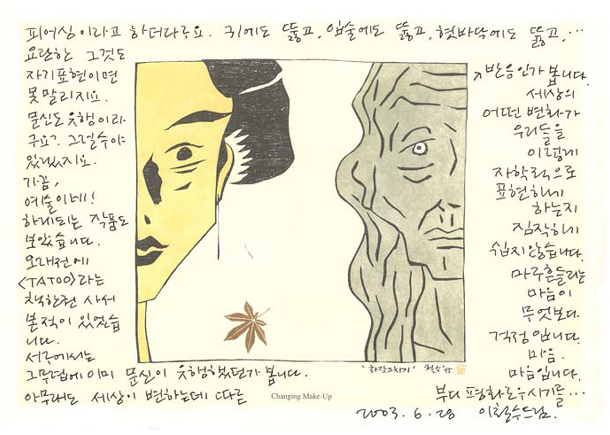 피어싱이라고 하더라구요. 귀에도 뚫고, 입술에도 뚫고, 혓바닥에도 뚫고, …
요란한 그것도
자기표현이면
못말리지요.
문신도 유행이라
구요? 그럴수야
있겠지요.
가끔,
예술이네!
하게되는 작품도
보았습니다.
오래전에
<TATOO>라는
책한권 사서
본적이 있었습
니다.
서구에서는
그무렵에 이미 문신이 유행했던가 봅니다.
아무래도 세상이 변하는데 따른
반응인가 봅니다.
세상의
어떤 변화가
우리들을
이렇게
자학적으로
표현하게
하는지
짐작하기
쉽지않습니다.
마주흔들리는
마음이
무엇보다
걱정입니다.
마음.
마음입니다.
부디 평화로우시기를…
2003. 6. 28 이철수드림.
'화장고치기' 철수 '95
Changing Make-Up